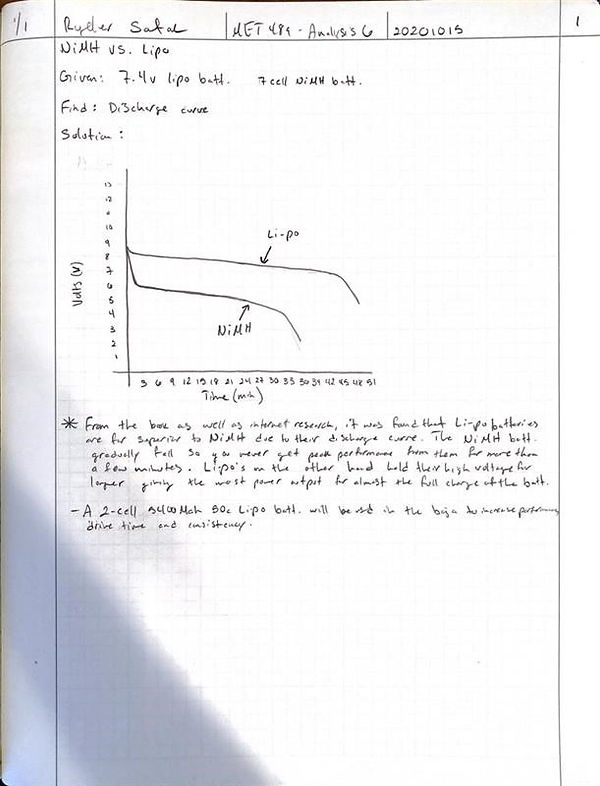 1/1 Ryder Satak MET 489 - Analysis 6 20201015 1
NiMH vs. Lipo
Given: 7.4v lipo batt. 7 cell NiMH batt.
Find: Discharge curve
Solution:
13
12
11
10
9
8
7
6
5
4
3
2
1
Volts (V)
Li-po
NiMH
3 6 9 12 15 18 21 24 27 30 33 36 39 42 45 48 51
Time (min)
* From the book as well as internet research, it was found that Li-po batteries
are far superior to NiMH due to their discharge curve. The NiMH batt.
gradually fall so you never get peak performance from them for more than
a few minutes. Lipo's on the other hand hold their high voltage for
longer giving the most power output for almost the full charge of the batt.
- A 2-cell 5400 Mah 50c Lipo batt. will be used in the baja to increase performance
drive time and consistency.